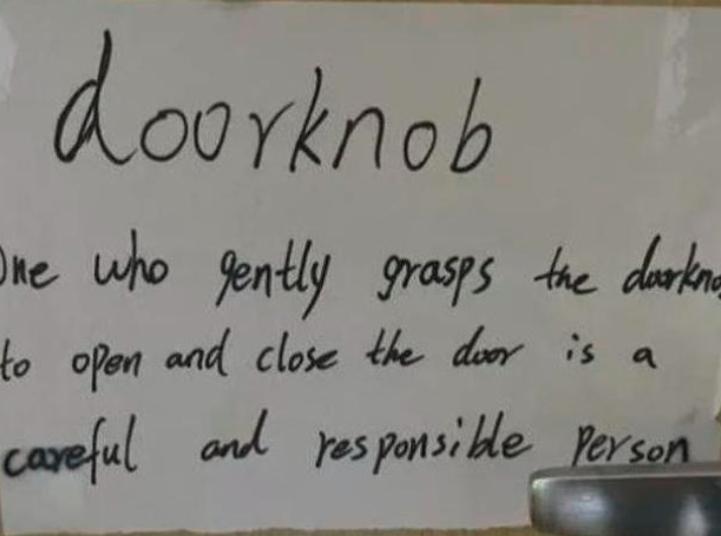 doorknob
One who gently grasps the doorkno
to open and close the door is a
careful and responsible person